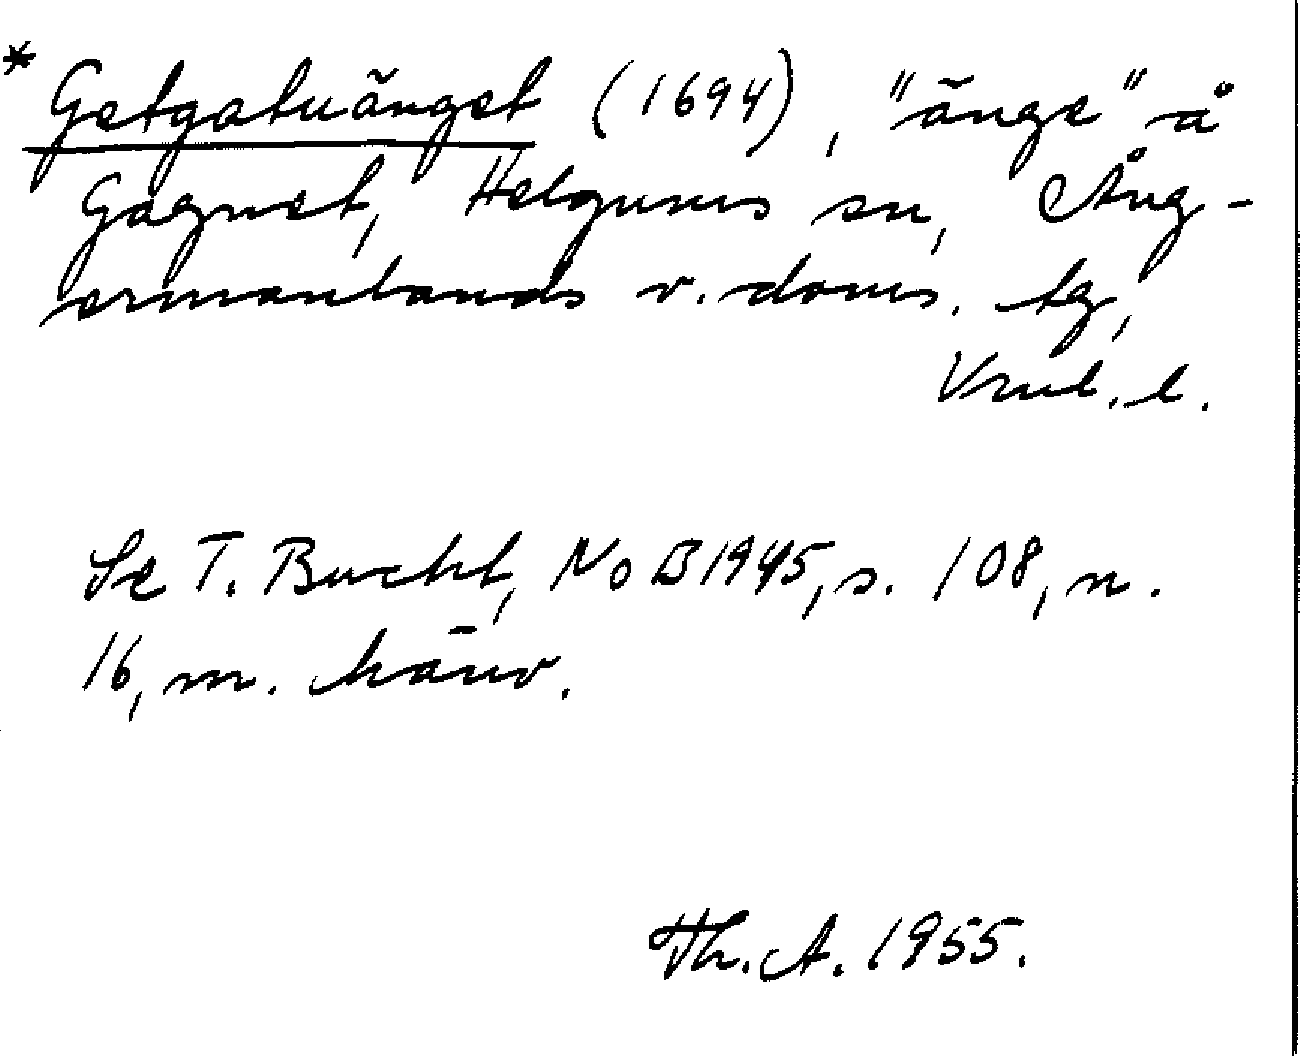 * Getgatuänget (1694), "änge" å
Gagnet, Helgums sn, Ång-
ermanlands v. doms. tg,
Vnul. l.
Se T. Bucht, NoB 1945, s. 108, n.
16, m. hänv.
Th. A. 1955.